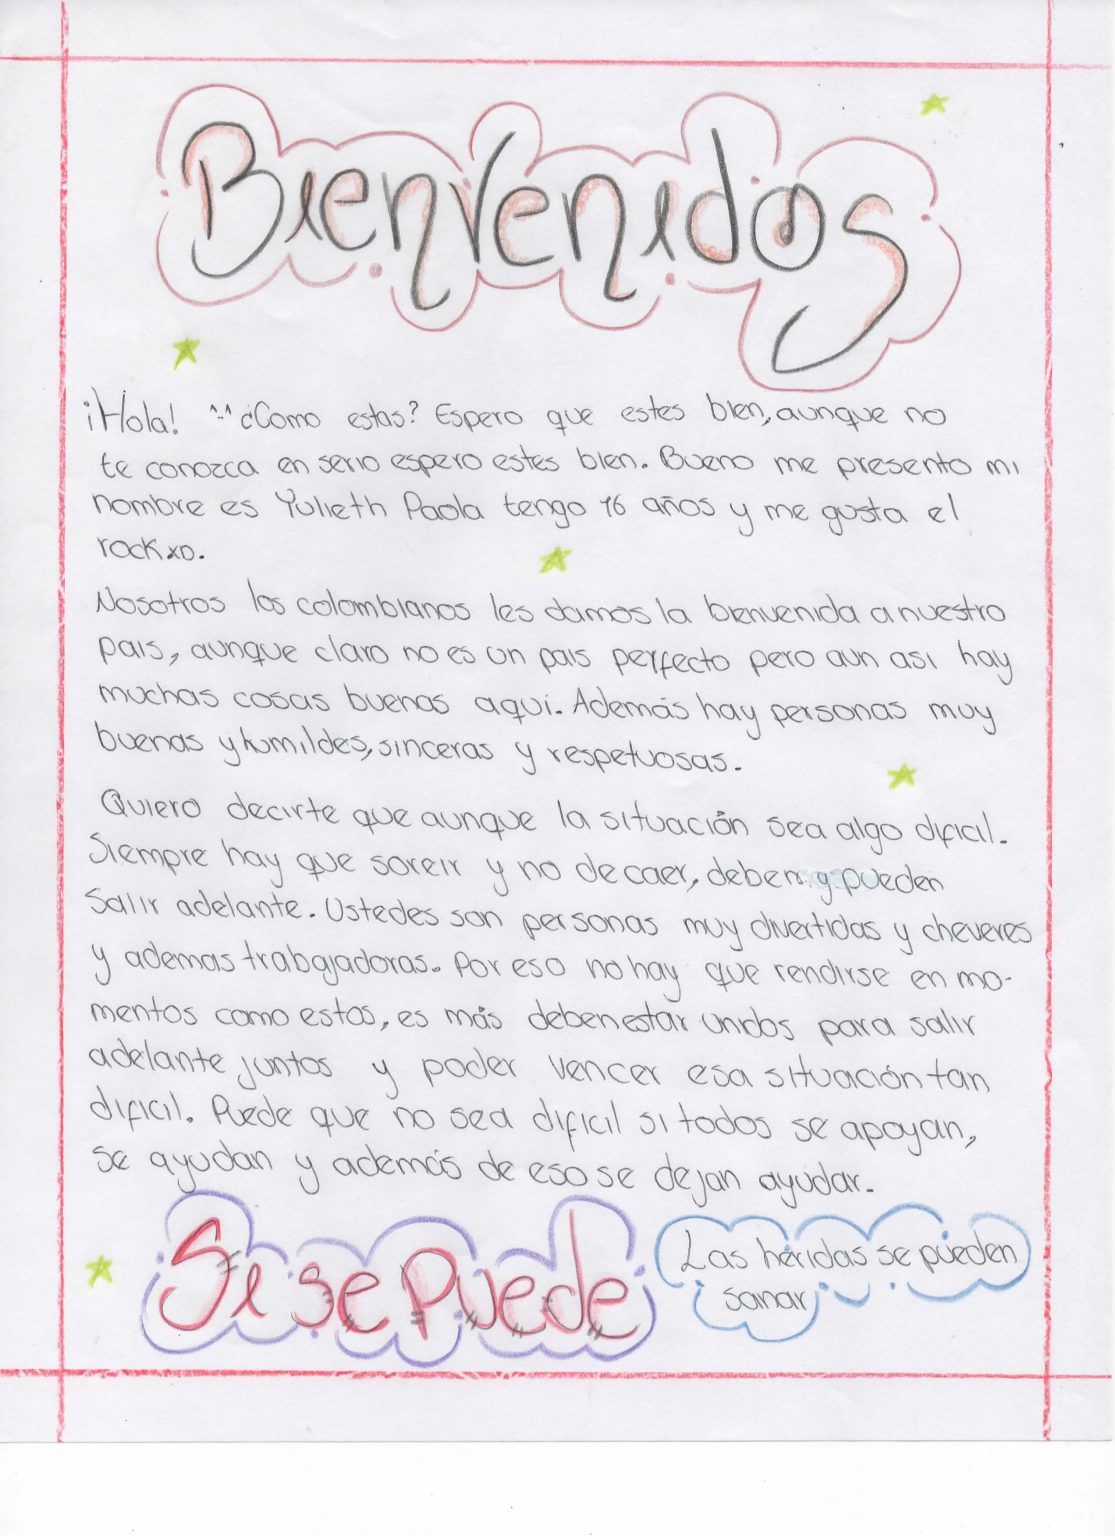 Bienvenidos
¡Hola! ¨ ¿Como estas? Espero que estes bien, aunque no
te conozca en serio espero estes bien. Bueno me presento mi
nombre es Yulieth Paola tengo 16 años y me gusta el
rock xD.
Nosotros los colombianos les damos la bienvenida a nuestro
pais, aunque claro no es un pais perfecto pero aun asi hay
muchas cosas buenas aqui. Además hay personas muy
buenas y humildes, sinceras y respetuosas.
Quiero decirte que aunque la situación sea algo dificil.
Siempre hay que soreir y no decaer, deben y pueden
Salir adelante. Ustedes son personas muy divertidas y cheveres
y ademas trabajadoras. Por eso no hay que rendirse en mo-
mentos como estos, es más deben estar unidos para salir
adelante juntos y poder vencer esa situación tan
dificil. Puede que no sea dificil si todos se apoyan,
se ayudan y además de eso se dejan ayudar.
Si se Puede
Las heridas se pueden
sanar